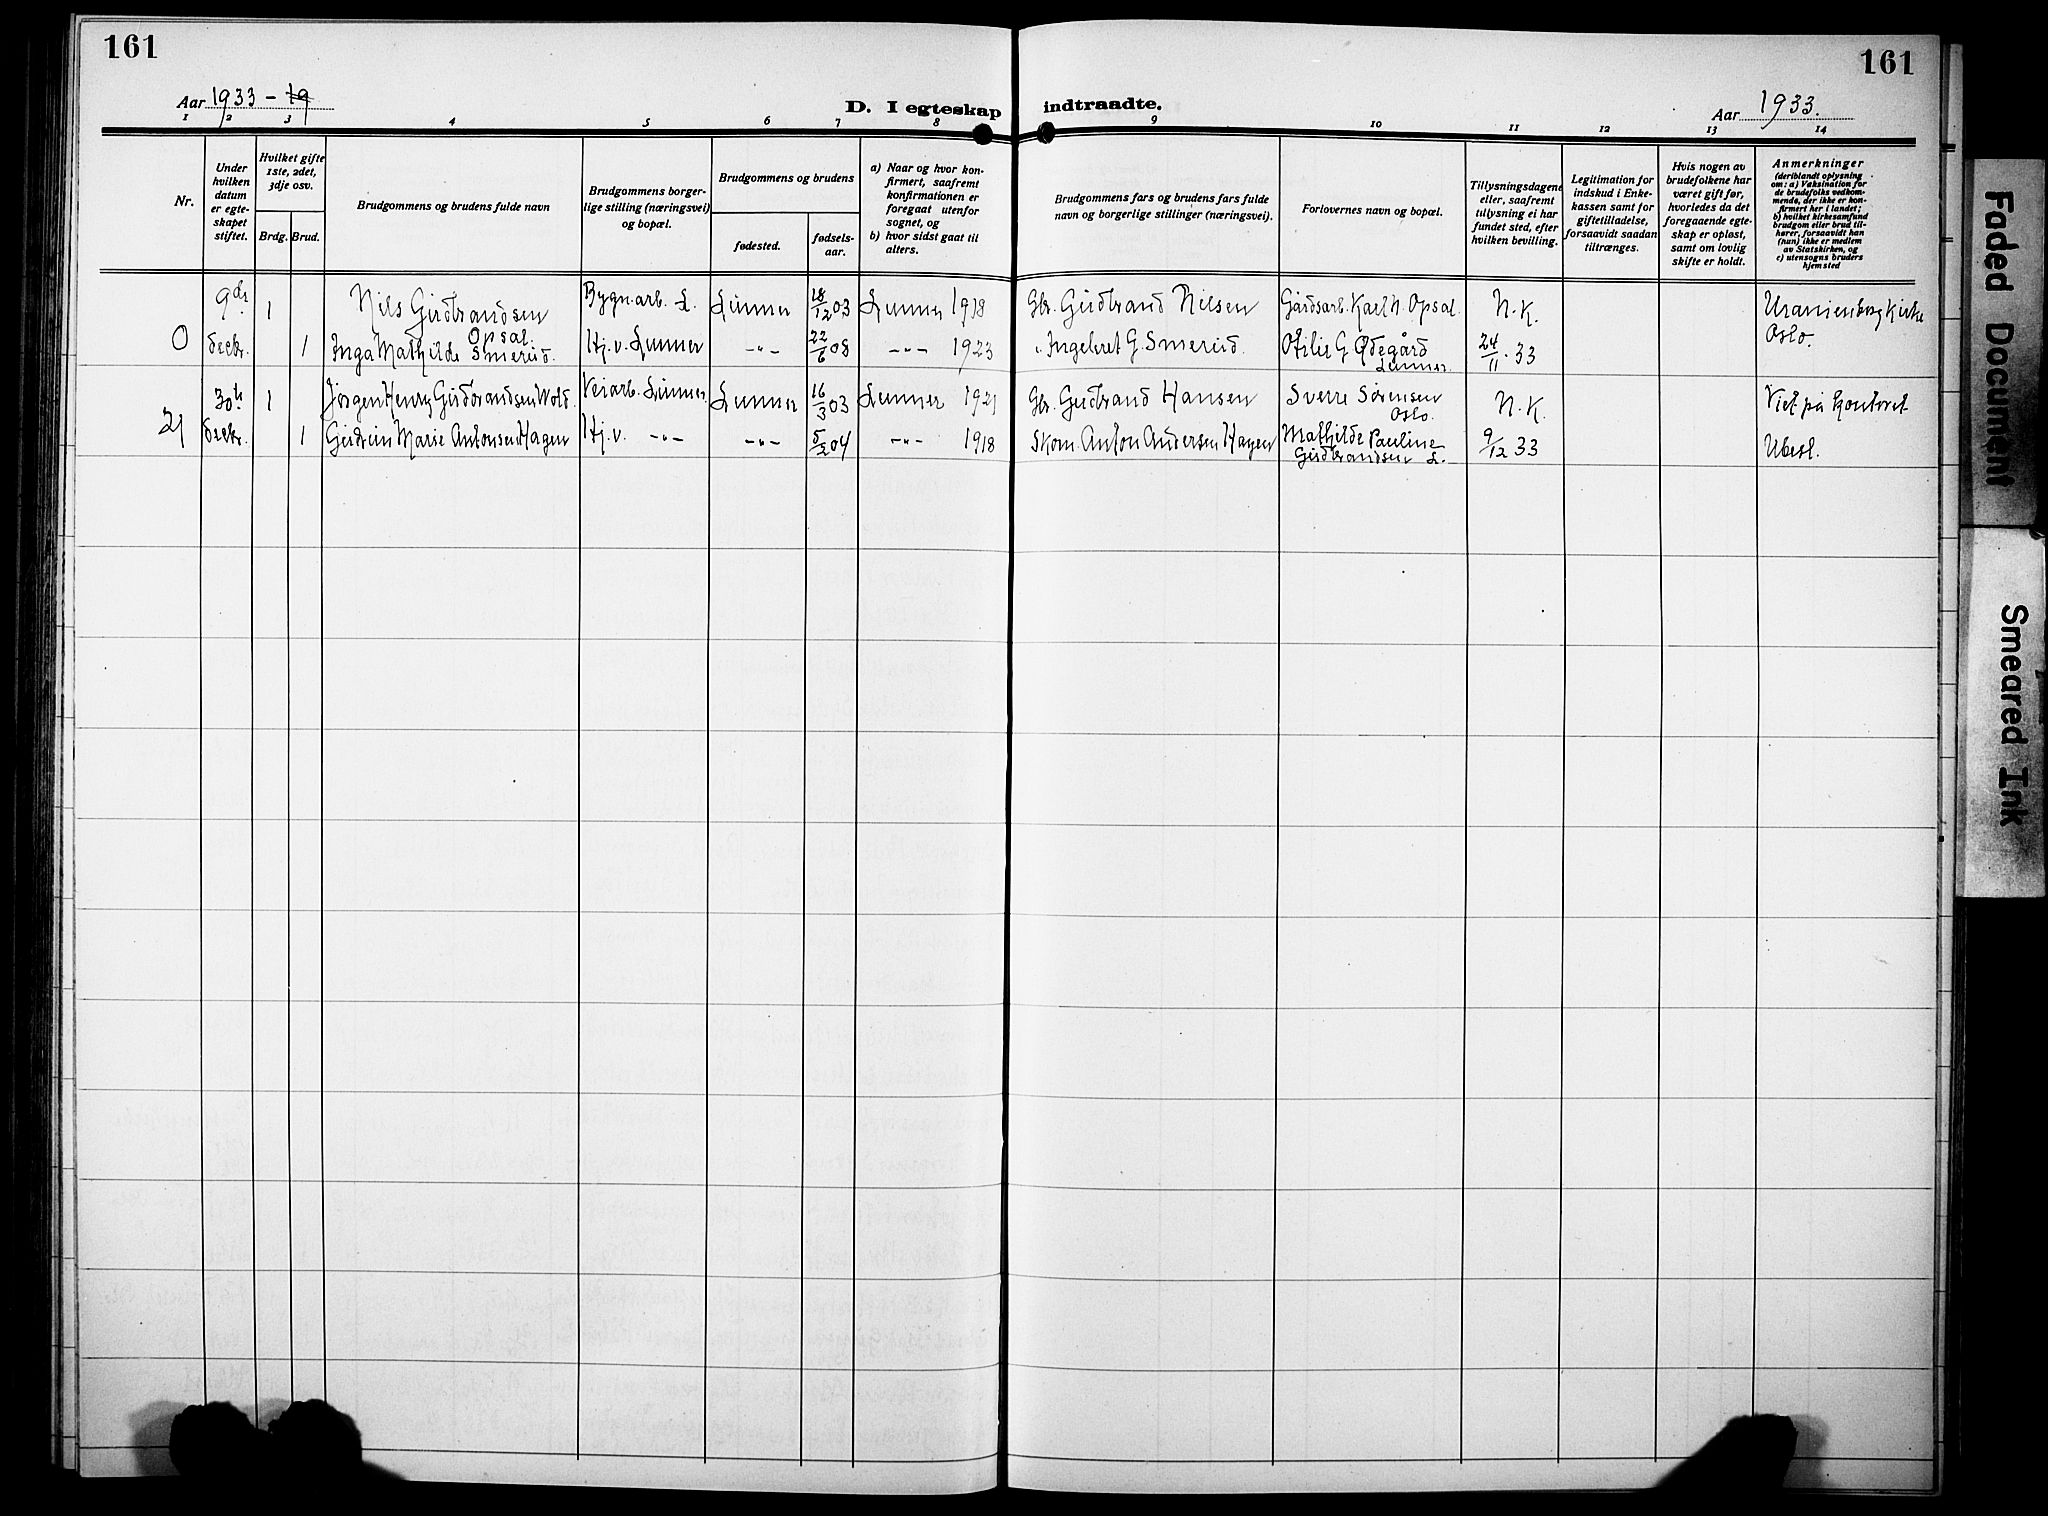 161
161
Aar 1933 - 19
D. I egteskap indtraadte.
Aar 1933.
1 2 3 4 5 6 7 8 9 10 11 12 13 14
Nr.
Under hvilken datum er egteskapet stiftet.
Hvilket gifte 1ste, 2det, 3dje osv.
Brdg. Brud.
Brudgommens og brudens fulde navn
Brudgommens borgerlige stilling (næringsvei) og bopæl.
Brudgommens og brudens
fødested.
fødselsaar.
a) Naar og hvor konfirmert, saafremt konfirmationen er foregaat utenfor sognet, og
b) hvor sidst gaat til alters.
Brudgommens fars og brudens fars fulde navn og borgerlige stillinger (næringsvei).
Forlovernes navn og bopæl.
Tillysningsdagene eller, saafremt tillysning ei har fundet sted, efter hvilken bevilling.
Legitimation for indskud i Enkekassen samt for giftetilladelse, forsaavidt saadan tiltrænges.
Hvis nogen av brudefolkene har været gift før, hvorledes da det foregaaende egteskap er opløst, samt om lovlig skifte er holdt.
Anmerkninger
(deriblandt oplysning om: a) Vaksination for de brudefolks vedkommende, der ikke er konfirmert her i landet;
b) hvilket kirkesamfund brudgom eller brud tilhører, forsaavidt han (hun) ikke er medlem av Statskirken, og
c) utensogns bruders hjemsted
9de 1 Nils Gudbrandsen Bygn.arb. L. Lunner 18/12 03 Lunner 1918 Gbr. Gudbrand Nilsen Gårdsarb. Karl N. Opsal. N.K. Uranienborg Kirke
Opsal. Oslo.
0 decbr. 1 Inga Mathilde Smerud. Hj.v. Lunner -"- 22/6 08 -"- 1923 " Ingebret G. Smerud. Otilie G. Ødegård 24/11 . 33
Lunner.
30te 1 Jørgen Henry Gudbrandsen Wold. Veiarb. Lunner. Lunner 16/3 03 Lunner 1921 Gbr. Gudbrand Hansen Sverre Sørensen N.K. Viet på kontoret
Oslo.
21 decbr. 1 Gudrun Marie Antonsen Hagen Hj.v. -"- -"- 5/2 04 -"- 1918 Skom. Anton Andersen Hagen Mathilde Pauline 9/12 33 Ubesl.
Gudbrandsen L.
Faded Document
Smeared Ink